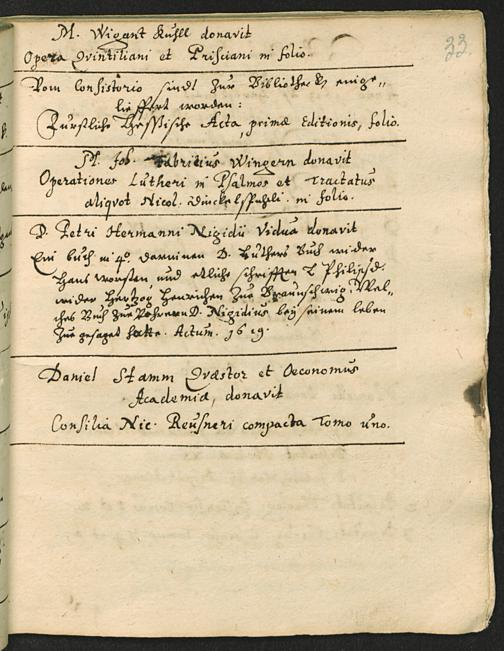 33
M. Wigant Kuhll donavit
Opera Qvintiliani et Prisciani in folio.
Vom Consistorio sindt zur Bibliotheck einge-
lieffert worden:
Fürstliche Hessische Acta, primæ Editionis, folio.
M. Joh. Fabritius Wingern donavit
Operationes Lutheri in Psalmos et Tractatus
aliqvot Nicol. Dinckelspühli. in folio.
D. Petri Hermanni Nigidii Vidua donavit
Ein buch in 4º darinnen D. Luthers Buch wider
Hans worsten, und etliche schrifften
wider Hertzog Henrichen zu Braunschweig. Wel-
ches Buch D. Nigidius bey seinem leben
zugesaget hatte. Actum. 1619.
Daniel Stamm Qvæstor et Oeconomus
Academiæ, donavit
Consilia Nic. Reusneri compacta Tomo uno.